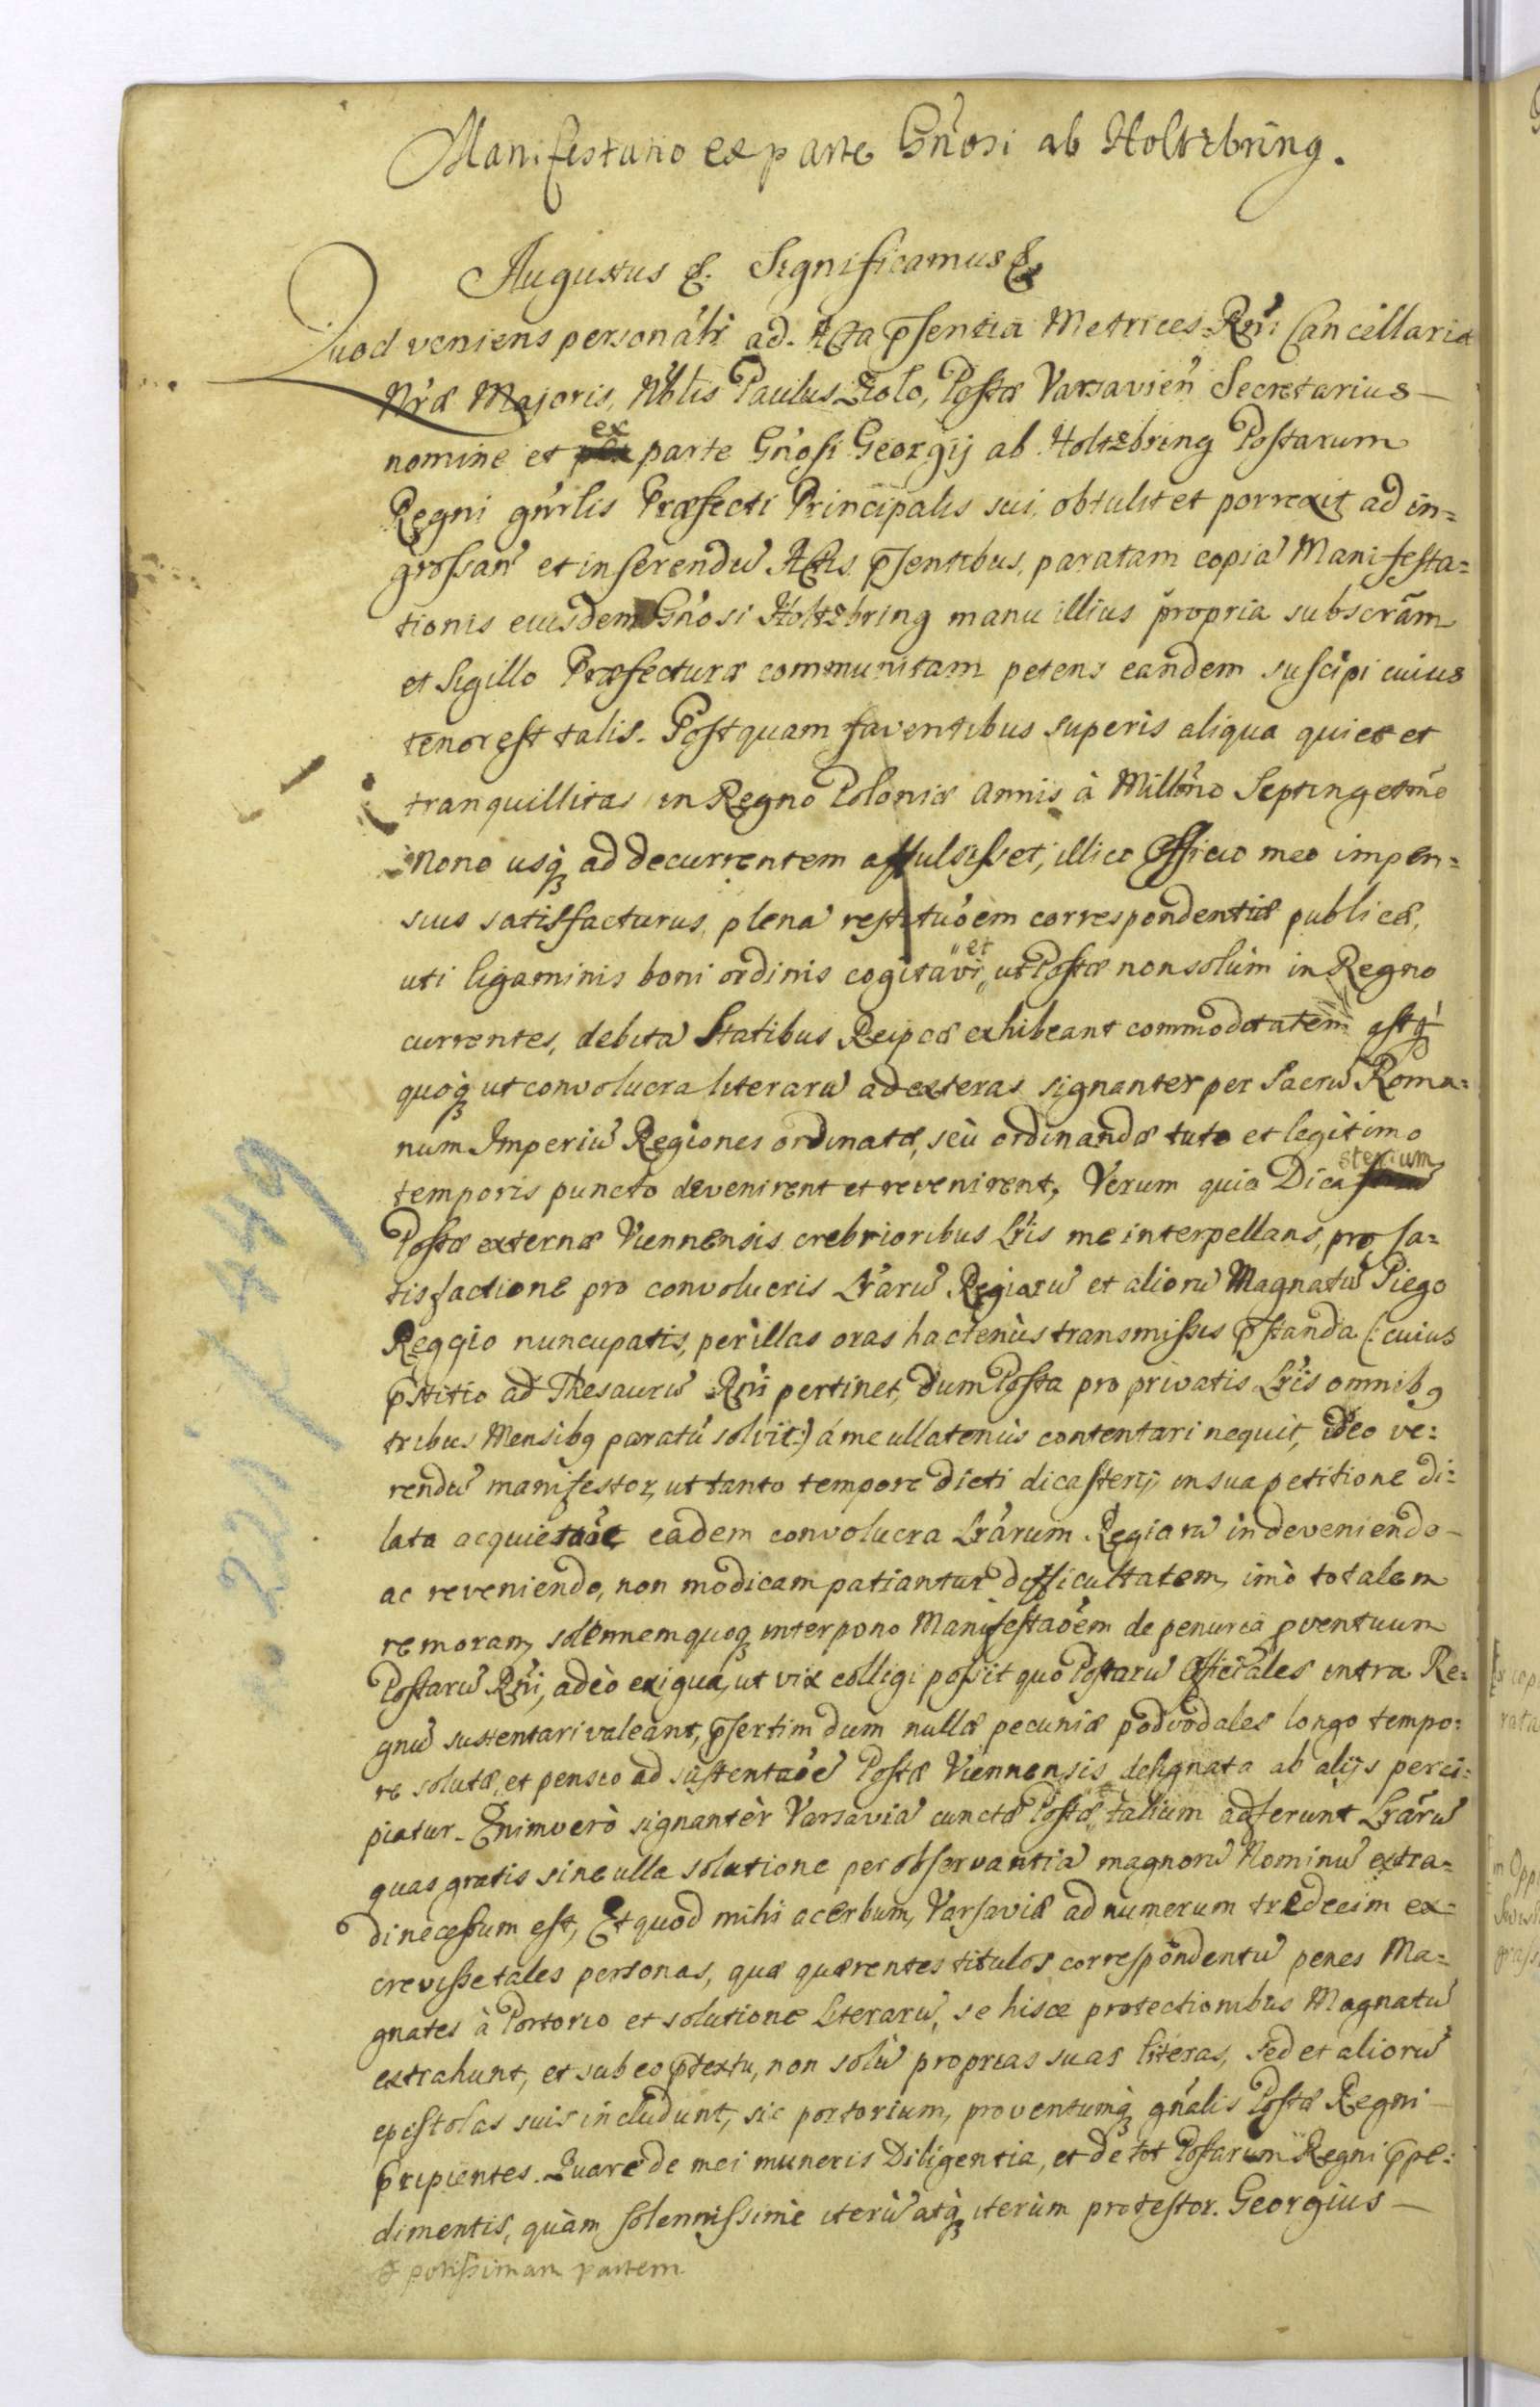 Manifestatio ex parte Gn̄osi ab Holtzbring.
Augustus &. Significamus &
Quod veniens personalr̄ ad Acta p̄sentia Metrices Rn̄i Cancellariæ
Nr̄æ Majoris, Nblis Paulus Zolo, Postæ Varsavien̄ Secretarius —
nomine et ex parte Gn̄osi Georgij ab Holtzbring Postarum
Regni gn̄rlis Præfecti Principalis sui, obtulit et porrexit ad in=
grossan̄ et inserendū Actis p̄sentibus, paratam copiā Manifesta=
tionis eiusdem Gn̄osi Holtzbring manu illius propria subscrām
et Sigillo Præfecturæ communitam petens eandem suscipi cuius
tenor est talis. Postquam faventibus superis aliqua quies et
tranquillitas in Regno Poloniæ Annis à Millm̄o Septingetm̄o
Nono usq́ ad decurrentem affulsisset, illico Officio meo impen=
sius satisfacturus, plenā restituōem correspondentiæ publicæ,
uti ligaminis boni ordinis cogitavi, et ut Postæ non solùm in Regno
currentes, debitā Statibus Reipcæ exhibeant commoditatem
quoq́ ut convolucra literarū ad exteras signanter per Sacrū Roma=
num Imperiū Regiones ordinatæ, seù ordinandæ tuto et legitimo
temporis puncto devenirent et revenirent, Verum quia Dicasterium
Postæ externæ Viennensis crebrioribus Lr̄is me interpellans, pro sa=
tisfactione pro convolucris Lr̄arū Regiarū et aliorū Magnatū Piego
Reggio nuncupatis, per illas oras hactenùs transmissis p̄standa (: cuius
p̄stitio ad Thesaurū Rn̄i pertinet, dum Posta pro privatis Lr̄is omnibꝰ
tribus Mensibꝰ paratū solvit :) á me ullatenùs contentari nequit, ideo ve=
rendū manifestor, ut tanto tempore dicti dicasterij in sua petitione di=
lata acquietāōe eadem convolucra Lr̄arum Regiarū in deveniendo —
ac reveniendo, non modicam patiantur difficultatem, imò totalem
remoram, solennem quoq́ interpono Manifestaōem de penuria pventuum
Postarū Rn̄i, adeò exigua, ut vix colligi possit quo Postarū Officiales intra Re=
gnū sustentari valeant, p̄sertim dum nullæ pecuniæ podvodales longo tempo=
re solutæ, et pensio ad sustentaōē Postæ Viennensis designata ab alijs perci=
piatur. Enimverò signantèr Varsaviā cunctæ Postæ, talium adferunt Lr̄arū
quas gratis sine ulla solutione per observantiā magnorū Nominū extra=
di necessum est, Et quod mihi acerbum, Varsaviæ ad numerum tredecim ex=
crevisse tales personas, quæ quærentes titulos correspondentū penes Ma=
gnates à Portorio et solutione literarū, se hisce protectionibus Magnatū
extrahunt, et sub eo p̄textu, non solū proprias suas literas, sed et aliorū
epistolas suis includunt, sic portorium, proventumq́ gn̄alis Postæ Regni —
p̄ripientes. Quare de mei muneris Diligentia, et de tot Postarum Regni p̄pe=
dimentis, quàm solennissimè iterū atq́ iterùm protestor. Georgius —
& potissimam partem
n. 221 / 449